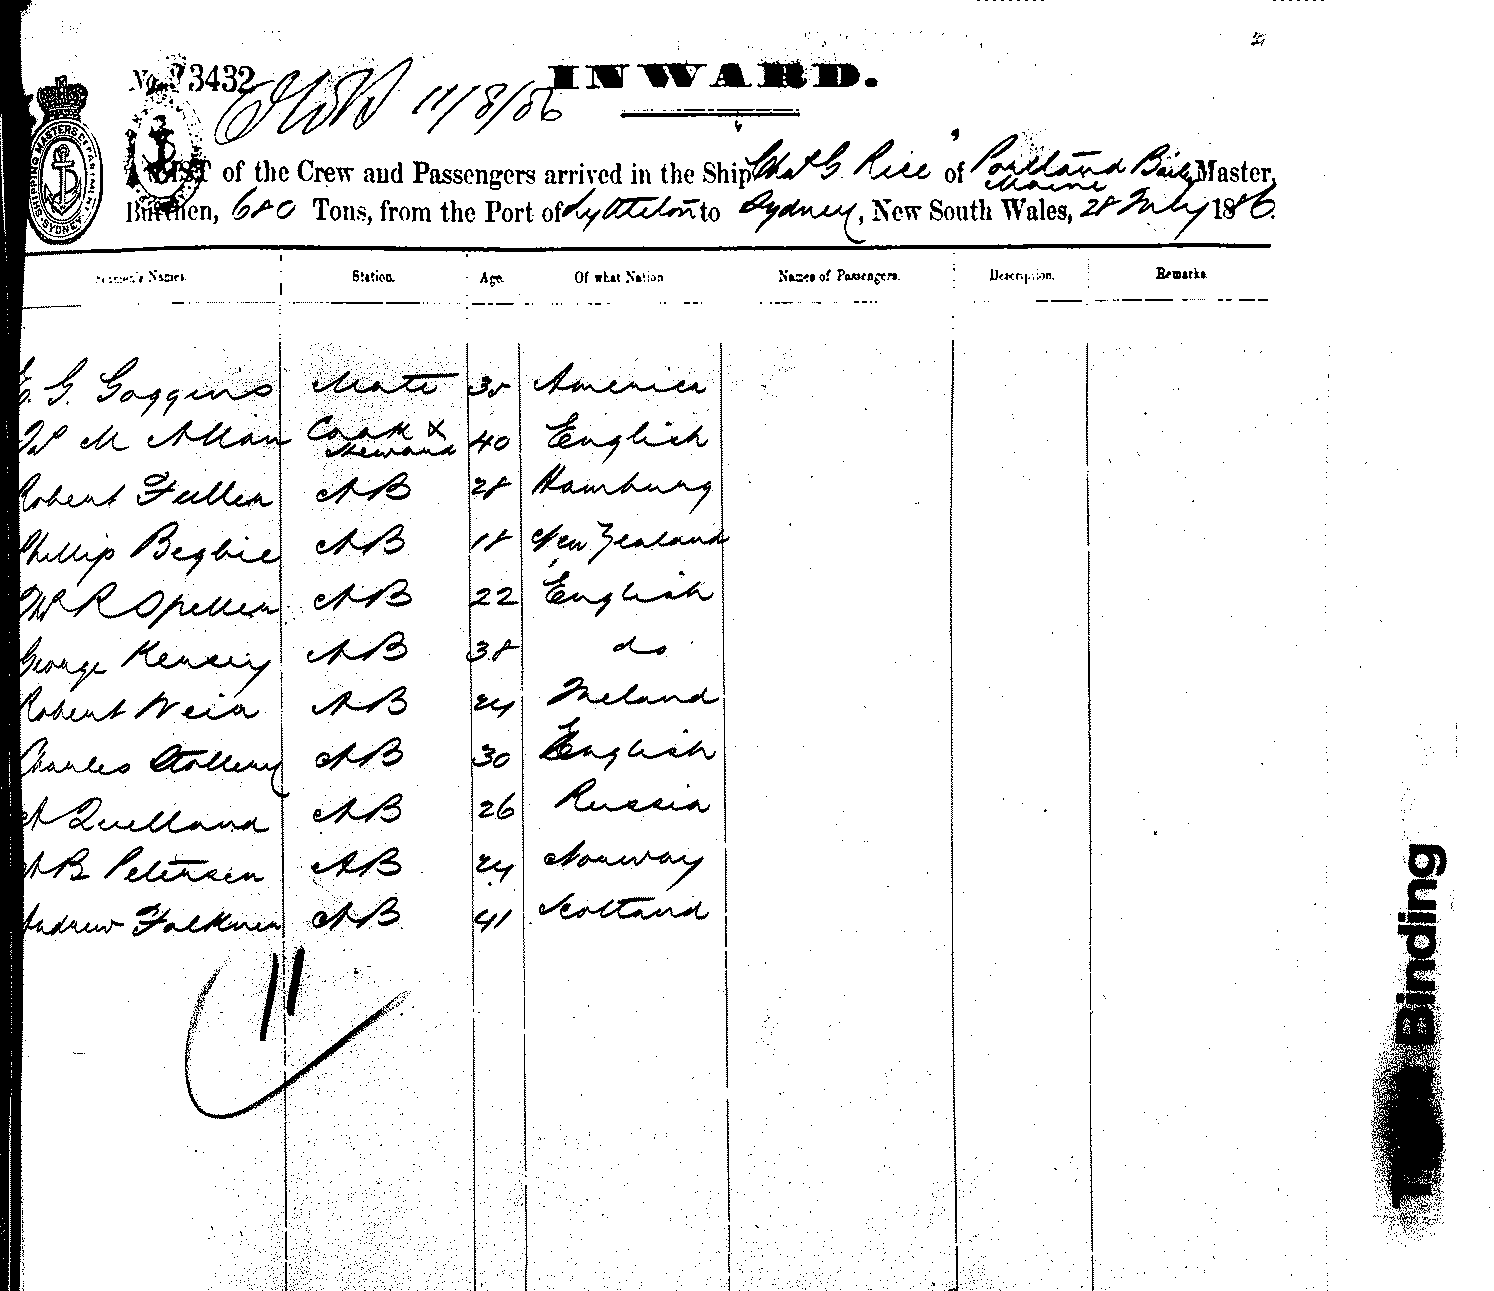 No. 73432
INWARD.
11/8/86
A LIST of the Crew and Passengers arrived in the Ship Chas G. Rice of Portland Maine Baily Master,
Burthen, 680 Tons, from the Port of Lyttelton to Sydney, New South Wales, 28 July 1886.
SHIPPING MASTERS DEPARTMENT SYDNEY
Seamen's Names. Station. Age. Of what Nation Names of Passengers. Description. Remarks.
E. G. Goggins Mate 35 America
W M Allan Cook & Steward 40 English
Robert Fuller AB 28 Hamburg
Phillip Begbie AB 18 New Zealand
Wm R Speller AB 22 English
George Kensey AB 38 do
Robert Weir AB 24 Ireland
Charles Stollery AB 30 English
A Quelland AB 26 Russia
A B Petersen AB 24 Norway
Andrew Falkner AB 41 Scotland
11
Binding